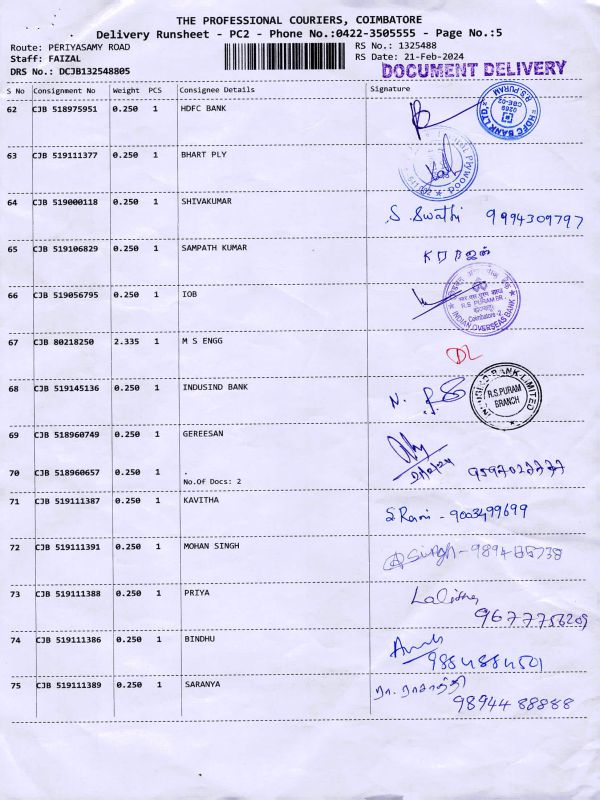 THE PROFESSIONAL COURIERS, COIMBATORE
Delivery Runsheet - PC2 - Phone No.:0422-3505555 - Page No.:5
Route: PERIYASAMY ROAD
RS No.: 1325488
Staff: FAIZAL
RS Date: 21-Feb-2024
DRS No.: DCJB132548805
DOCUMENT DELIVERY
S No Consignment No Weight PCS Consignee Details Signature
62 CJB 518975951 0.250 1 HDFC BANK
HDFC BANK LTD R.S.PURAM
63 CJB 519111377 0.250 1 BHART PLY
Plywood
64 CJB 519000118 0.250 1 SHIVAKUMAR
S. Swathi 9994309797
65 CJB 519106829 0.250 1 SAMPATH KUMAR
66 CJB 519056795 0.250 1 IOB
R.S. PURAM BR.
Coimbatore-2
INDIAN OVERSEAS BANK
67 CJB 80218250 2.335 1 M S ENGG
DL
68 CJB 519145136 0.250 1 INDUSIND BANK
N.
INDUSIND BANK LIMITED
R.S.PURAM
BRANCH
69 CJB 518960749 0.250 1 GEREESAN
70 CJB 518960657 0.250 1 .
No.Of Docs: 2
71 CJB 519111387 0.250 1 KAVITHA
S Rani - 9003499699
72 CJB 519111391 0.250 1 MOHAN SINGH
Singh -
73 CJB 519111388 0.250 1 PRIYA
Lalitha
9677756209
74 CJB 519111386 0.250 1 BINDHU
75 CJB 519111389 0.250 1 SARANYA
ரா. ராசாத்தி
9894488888